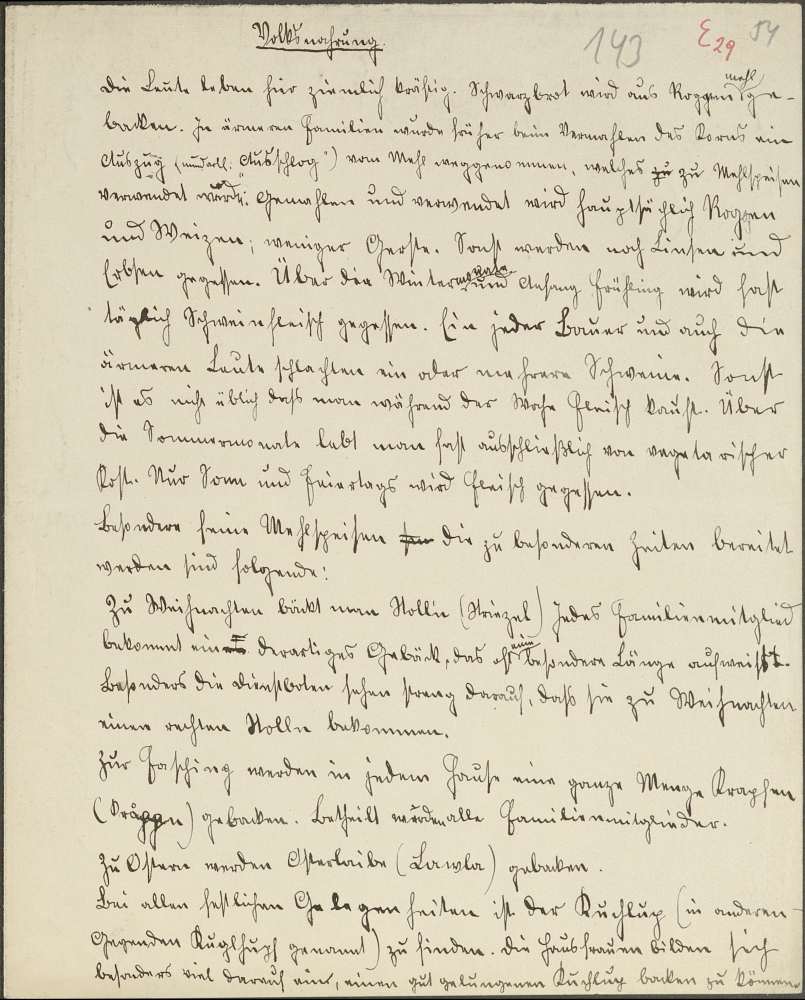 Volksnahrung.
143
E 29
54
Die Leute leben hier ziemlich kräftig. Schwarzbrot wird aus Roggenmehl ge-
backen. In ärmeren Familien wurde früher beim Vermahlen des Korns ein
Auszug (mundartl. "Ausschlog") vom Mehl weggenommen, welches zu zu Mehlspeisen
verwendet wurde. Gemahlen und verwendet wird hauptsächlich Roggen
und Weizen; weniger Gerste. Sonst werden noch Linsen und
Erbsen gegessen. Über die Wintermonate und Anfang Frühling wird fast
täglich Schweinfleisch gegessen. Ein jeder Bauer und auch die
ärmeren Leute schlachten ein oder mehrere Schweine. Sonst
ist es nicht üblich dass man während der Woche Fleisch kauft. Über
die Sommermonate lebt man fast ausschließlich von vegetarischer
Kost. Nur Sonn und Feiertags wird Fleisch gegessen.
Besondere feine Mehlspeisen die zu besonderen Zeiten bereitet
werden sind folgende:
Zu Weihnachten bäckt man Stolln (Striezel) Jedes Familienmitglied
bekommt ein derartiges Gebäck, das oft eine besondere Länge aufweist.
Besonders die Dienstboten sehen streng darauf, dass sie zu Weihnachten
einen rechten Stolln bekommen.
Zur Fasching werden in jedem Hause eine ganze Menge Krapfen
(Kråppn) gebacken. Betheilt werden alle Familienmitglieder.
Zu Ostern werden Osterlaibe (Lawla) gebacken.
Bei allen festlichen Gelegenheiten ist der Kuchlup (in anderen
Gegenden Kuglhupf genannt) zu finden. Die Hausfrauen bilden sich
besonders viel darauf ein, einen gut gelungenen Kuchlup backen zu können.